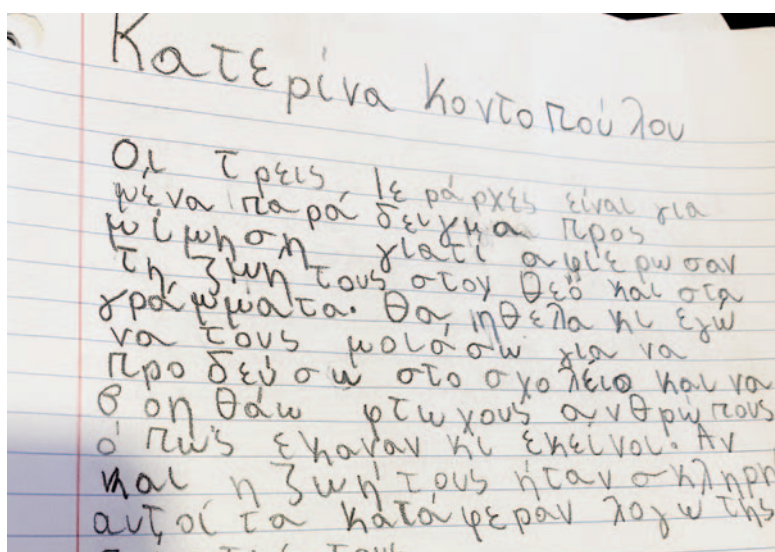 Κατερίνα Κοντοπούλου
Οι τρεις Ιεράρχες είναι για
μένα παράδειγμα προς
μίμηση γιατί αφιέρωσαν
τη ζωή τους στον Θεό και στα
γράμματα. Θα ηθελα κι εγώ
να τους μοιάσω για να
προδεύσω στο σχολείο και να
βοηθάω φτωχούς ανθρώπους
όπως εκαναν κι εκείνοι. Αν
και η ζωή τους ήταν σκληρη
αυτοί τα κατάφεραν λογω της